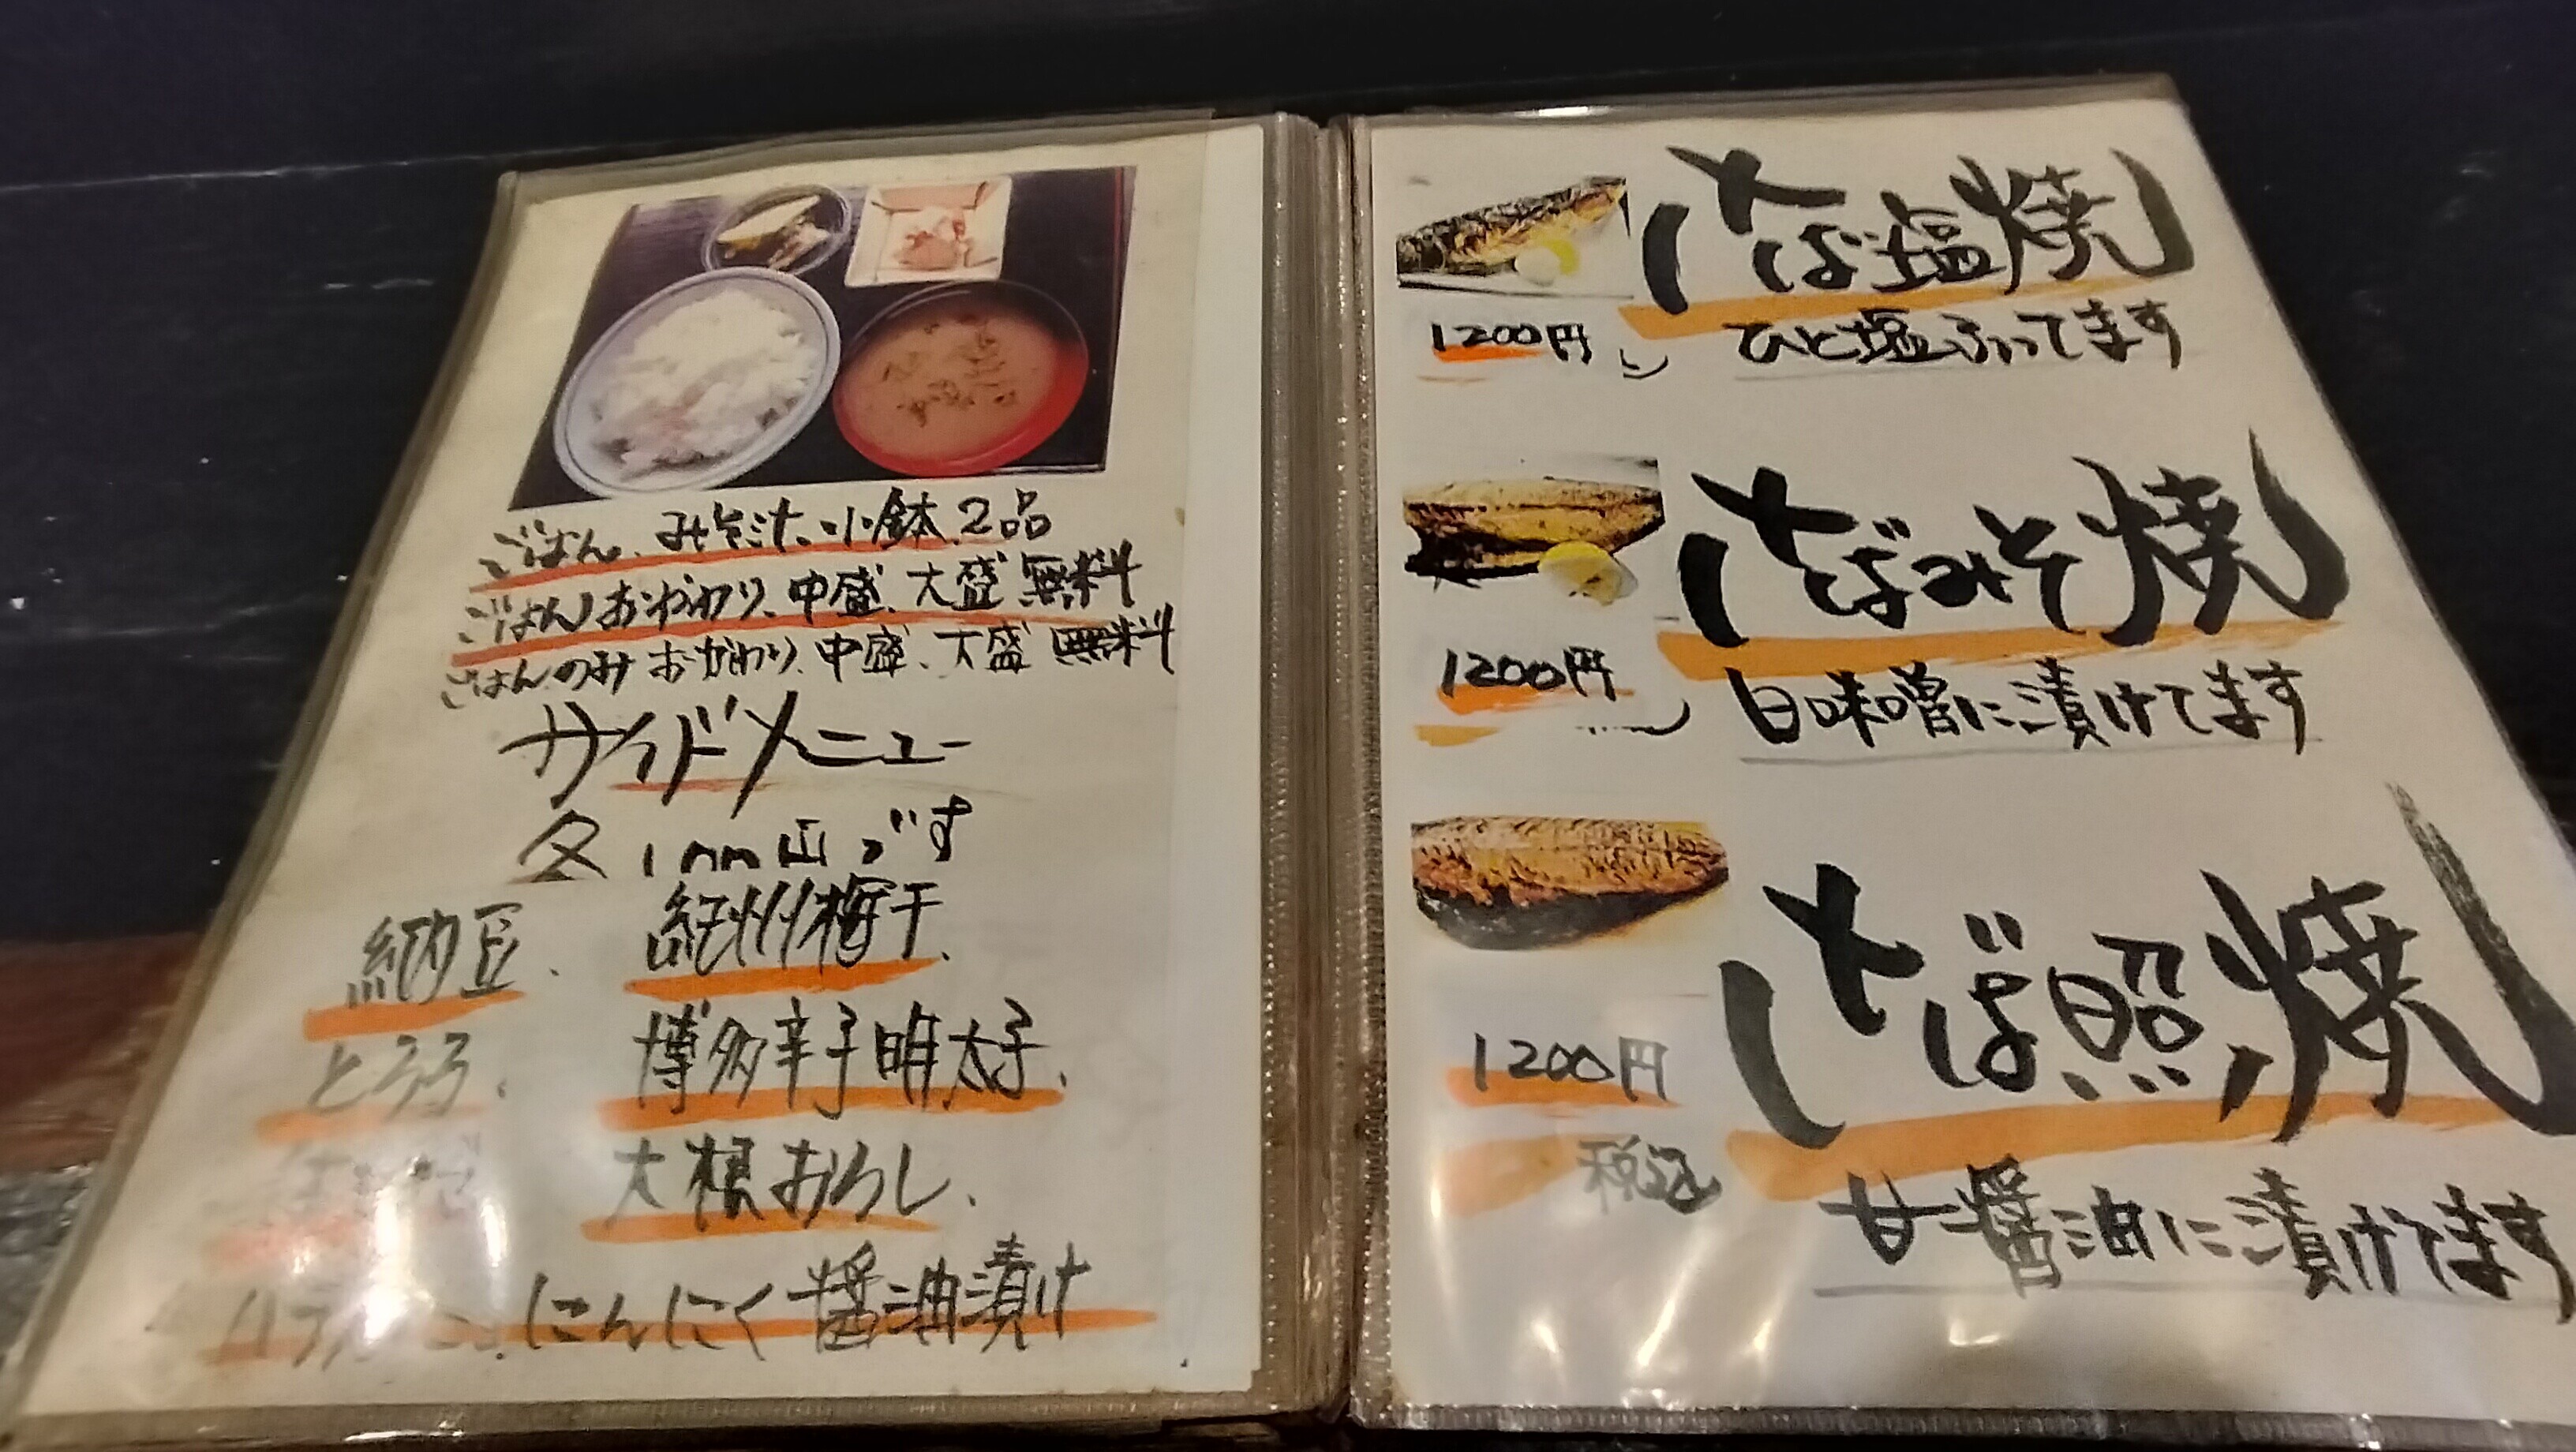 ごはん、みそ汁、小鉢2品
ごはんおかわり、中盛、大盛 無料
ごはんのみ おかわり、中盛、大盛 無料
サイドメニュー
納豆、紀州梅干、
とろろ、博多辛子明太子、
大根おろし、
にんにく醤油漬け
さば塩焼
1200円
ひと塩ふってます
さばみそ焼
1200円
白味噌に漬けてます
さば照焼
1200円
税込
甘醤油に漬けてます